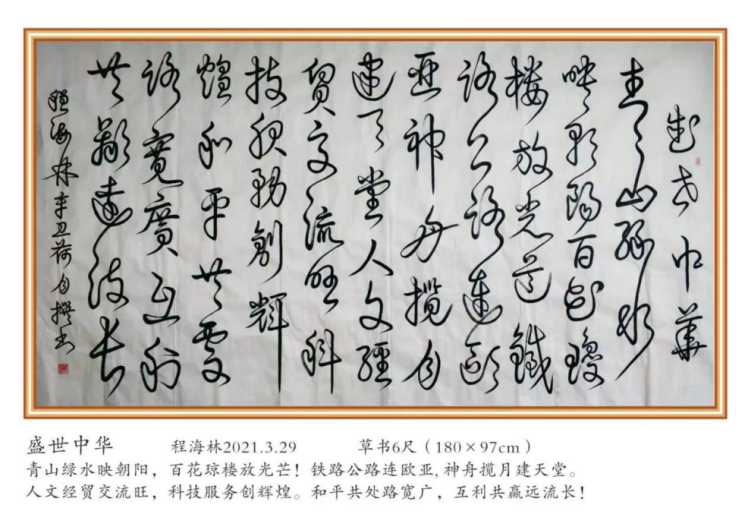 盛世中華
青山綠水
映朝陽百花瓊
樓放光芒鐵
路公路連歐
亞神舟攬月
建天堂人文經
貿交流旺科
技服務創輝
煌和平共處
路寬廣互利
共贏遠流長
程海林辛丑荷月撰書
盛世中华 程海林2021.3.29 草书6尺（180×97cm）
青山绿水映朝阳，百花琼楼放光芒！铁路公路连欧亚,神舟揽月建天堂。
人文经贸交流旺，科技服务创辉煌。和平共处路宽广，互利共赢远流长！